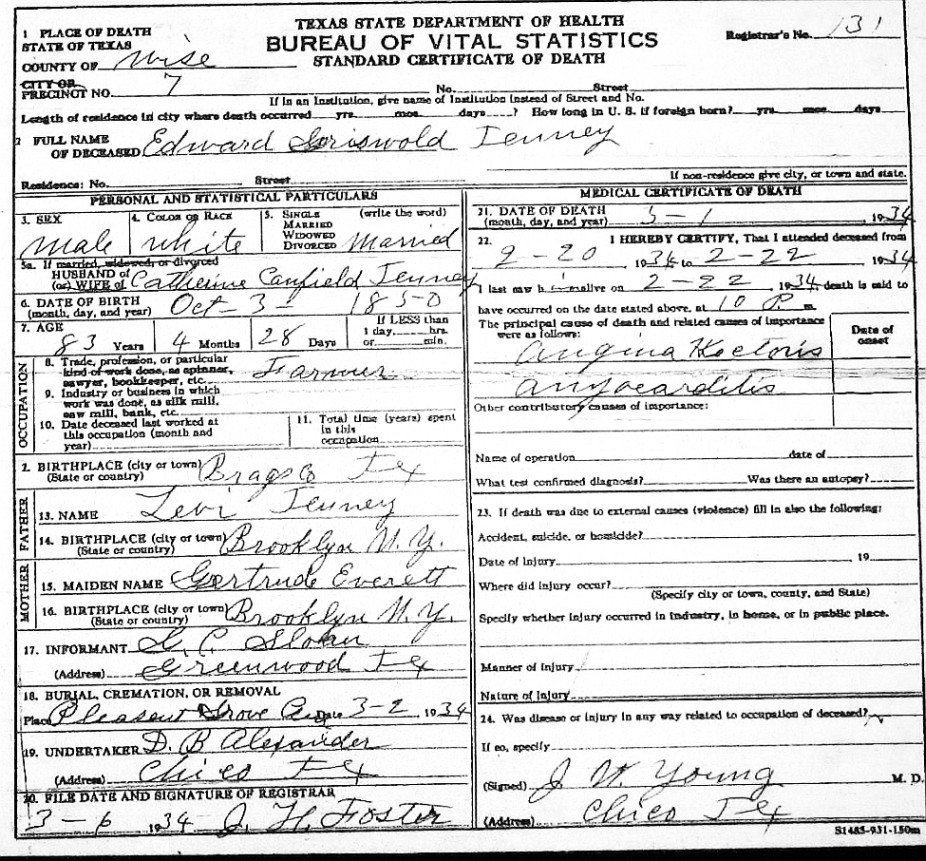 TEXAS STATE DEPARTMENT OF HEALTH
BUREAU OF VITAL STATISTICS
STANDARD CERTIFICATE OF DEATH
Registrar's No. 131
1 PLACE OF DEATH
STATE OF TEXAS
COUNTY OF Wise
CITY OR
PRECINCT NO. 7 No. Street
If in an Institution, give name of Institution instead of Street and No.
Length of residence in city where death occurred yrs. mos. days ? How long in U. S. if foreign born? yrs. mos. days
2 FULL NAME
OF DECEASED Edward Griswold Tenney
Residence: No. Street If non-residence give city, or town and state.
PERSONAL AND STATISTICAL PARTICULARS
3. SEX
Male
4. COLOR OR RACE
White
5. SINGLE (write the word)
MARRIED
WIDOWED
DIVORCED Married
5a. If married, widowed, or divorced
HUSBAND of
(or) WIFE of Catherine Canfield Tenney
6. DATE OF BIRTH
(month, day, and year) Oct - 3 - 1850
7. AGE If LESS than
83 Years 4 Months 28 Days 1 day hrs.
or min.
OCCUPATION
8. Trade, profession, or particular
kind of work done, as spinner,
sawyer, bookkeeper, etc. Farmer
9. Industry or business in which
work was done, as silk mill,
saw mill, bank, etc.
10. Date deceased last worked at
this occupation (month and
year)
11. Total time (years) spent
in this
occupation
2. BIRTHPLACE (city or town)
(State or country) Tex
FATHER
13. NAME Levi Tenney
14. BIRTHPLACE (city or town)
(State or country) Brooklyn N. Y.
MOTHER
15. MAIDEN NAME Gertrude Everett
16. BIRTHPLACE (city or town)
(State or country) Brooklyn N. Y.
17. INFORMANT C. Sloan
(Address) Greenwood Tex
18. BURIAL, CREMATION, OR REMOVAL
Place Pleasant Grove Date 3-2 1934
19. UNDERTAKER D. B Alexander
(Address) Chico Tex
20. FILE DATE AND SIGNATURE OF REGISTRAR
3 - 6 1934 J. H. Foster
MEDICAL CERTIFICATE OF DEATH
21. DATE OF DEATH
(month, day, and year) 3 - 1 1934
22. I HEREBY CERTIFY, That I attended deceased from
2 - 20 1934 to 2 - 22 1934
I last saw him alive on 2 - 22 1934 death is said to
have occurred on the date stated above, at 10 P. m.
The principal cause of death and related causes of importance
were as follows:
Date of
onset
Angina Pectoris
Other contributory causes of importance:
Name of operation date of
What test confirmed diagnosis? Was there an autopsy?
23. If death was due to external causes (violence) fill in also the following:
Accident, suicide, or homicide?
Date of injury 19
Where did injury occur?
(Specify city or town, county, and State)
Specify whether injury occurred in industry, in home, or in public place.
Manner of injury
Nature of injury
24. Was disease or injury in any way related to occupation of deceased?
If so, specify
(Signed) J. W. Young M. D.
(Address) Chico Tex
S1485-931-150m